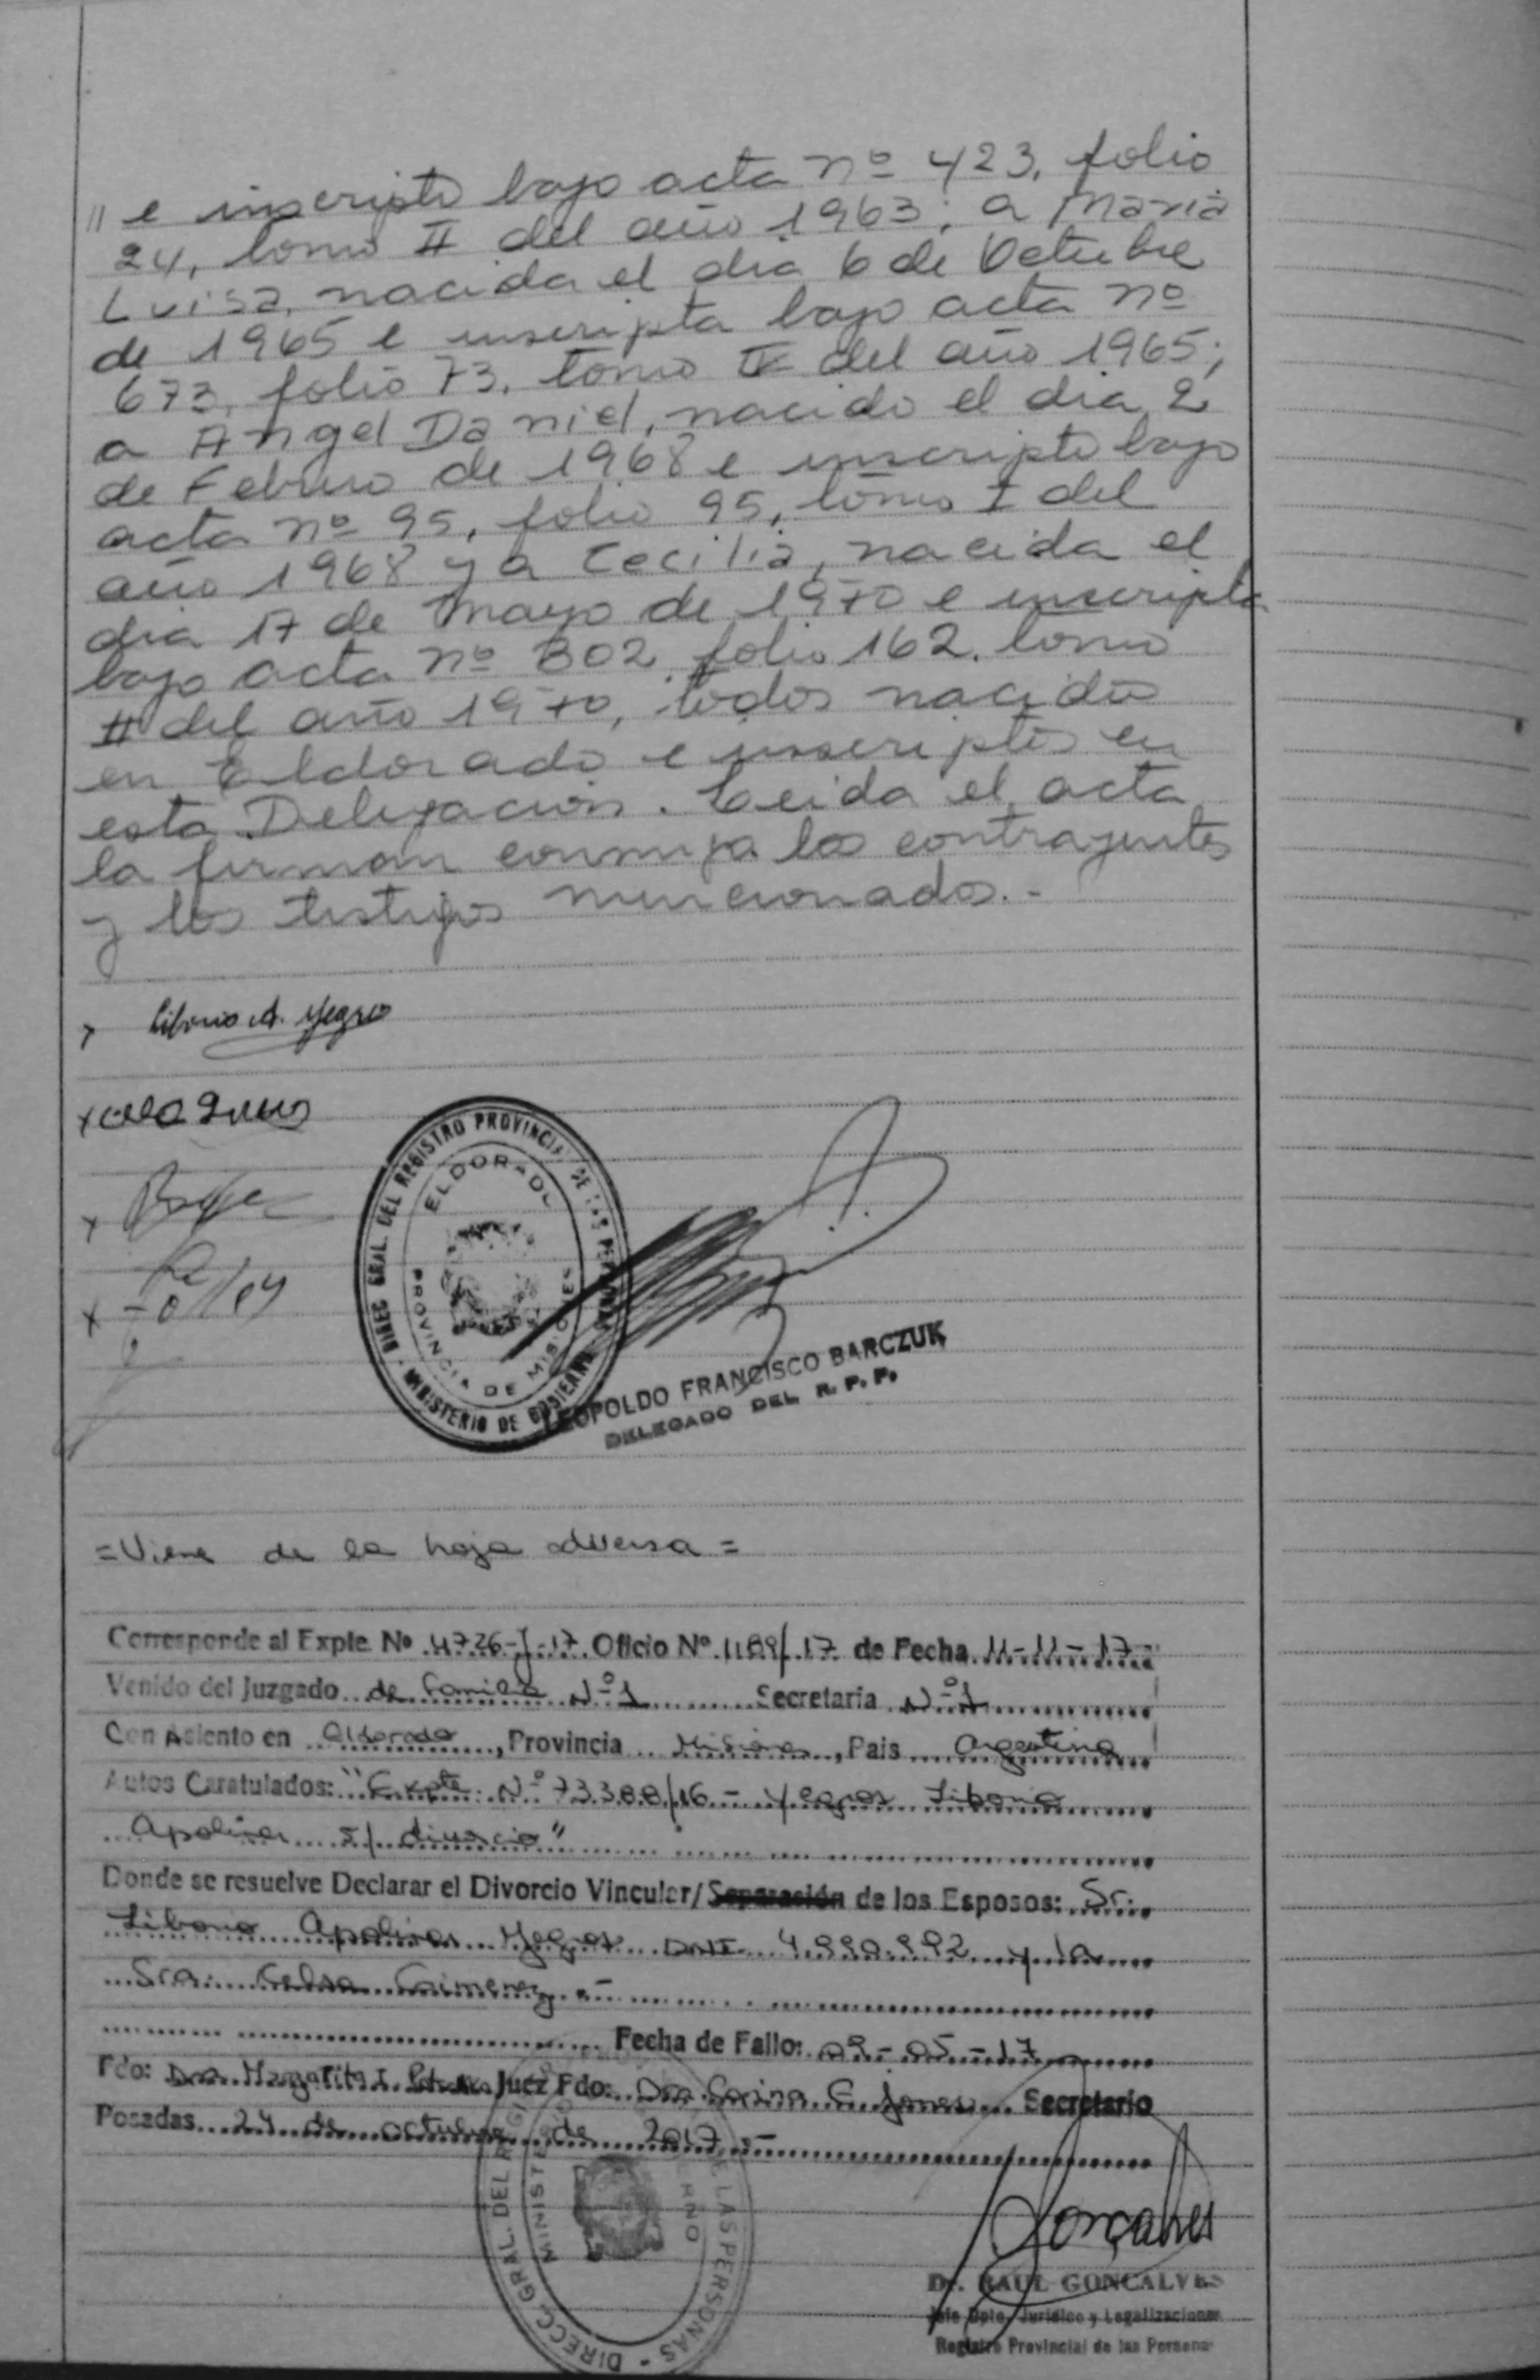 // e inscripto bajo acta nº 423, folio
24, tomo II del año 1963; a Maria
Luisa, nacida el dia 6 de Octubre
de 1965 e inscripta bajo acta nº
673, folio 73, tomo IV del año 1965;
a Angel Daniel, nacido el dia 2
de Febrero de 1968 e inscripto bajo
acta nº 95, folio 95, tomo I del
año 1968 y a Cecilia, nacida el
dia 17 de Mayo de 1970 e inscripta
bajo acta nº 302 folio 162. tomo
II del año 1970, todos nacidos
en Eldorado e inscriptos en
esta Delegación. Leida el acta
la firman conmigo los contrayentes
y los testigos mencionados.-
Liborio A. Yegros
DIREC. GRAL. DEL REGISTRO PROVINCIAL DE LAS PERSONAS
ELDORADO
PROVINCIA DE MISIONES
MINISTERIO DE GOBIERNO
LEOPOLDO FRANCISCO BARCZUK
DELEGADO DEL R. P. P.
= Viene de la hoja adversa =
Corresponde al Expte. Nº 4726-J-17 Oficio Nº 1189/17 de Fecha 11-11-17
Venido del Juzgado de Familia Nº 1 Secretaria Nº 1
Con Asiento en Eldorado, Provincia Misiones, Pais Argentina
Autos Caratulados: "Expte. Nº 73388/16 - Yegros Liborio
Apolinar s/ divorcio"
Donde se resuelve Declarar el Divorcio Vincular/Separación de los Esposos: Sr.
Liborio Apolinar Yegros DNI 4.990.992 y la
Sra. Celsa Gimenez.-
Fecha de Fallo: 09-05-17
Fdo: Dra. Margarita I. Juez Fdo: Dra Carina E. Jones Secretario
Posadas 24 de octubre de 2017.-
DIRECC. GRAL. DEL REGI LAS PERSONAS
MINISTE
Goncalves
Dr. RAUL GONCALVES
Jefe Dpto. Jurídico y Legalizaciones
Registro Provincial de las Persona